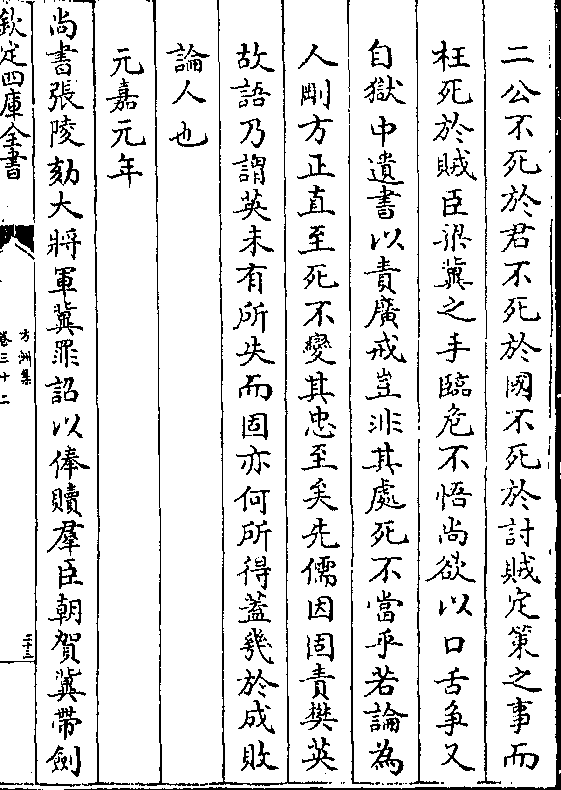 二公不死於君不死於國不死於討賊定策之事而
枉死於賊臣梁冀之手臨危不悟尚欲以口舌争又
自獄中遺書以責廣戒豈非其處死不當乎若論為
人剛方正直至死不變其忠至矣先儒因固責樊英
故語乃謂英未有所失而固亦何所得蓋幾於成敗
論人也
元嘉元年
尚書張陵劾大將軍冀罪詔以俸贖羣臣朝賀冀帶劍
欽定四庫全書
方洲集
卷三十二